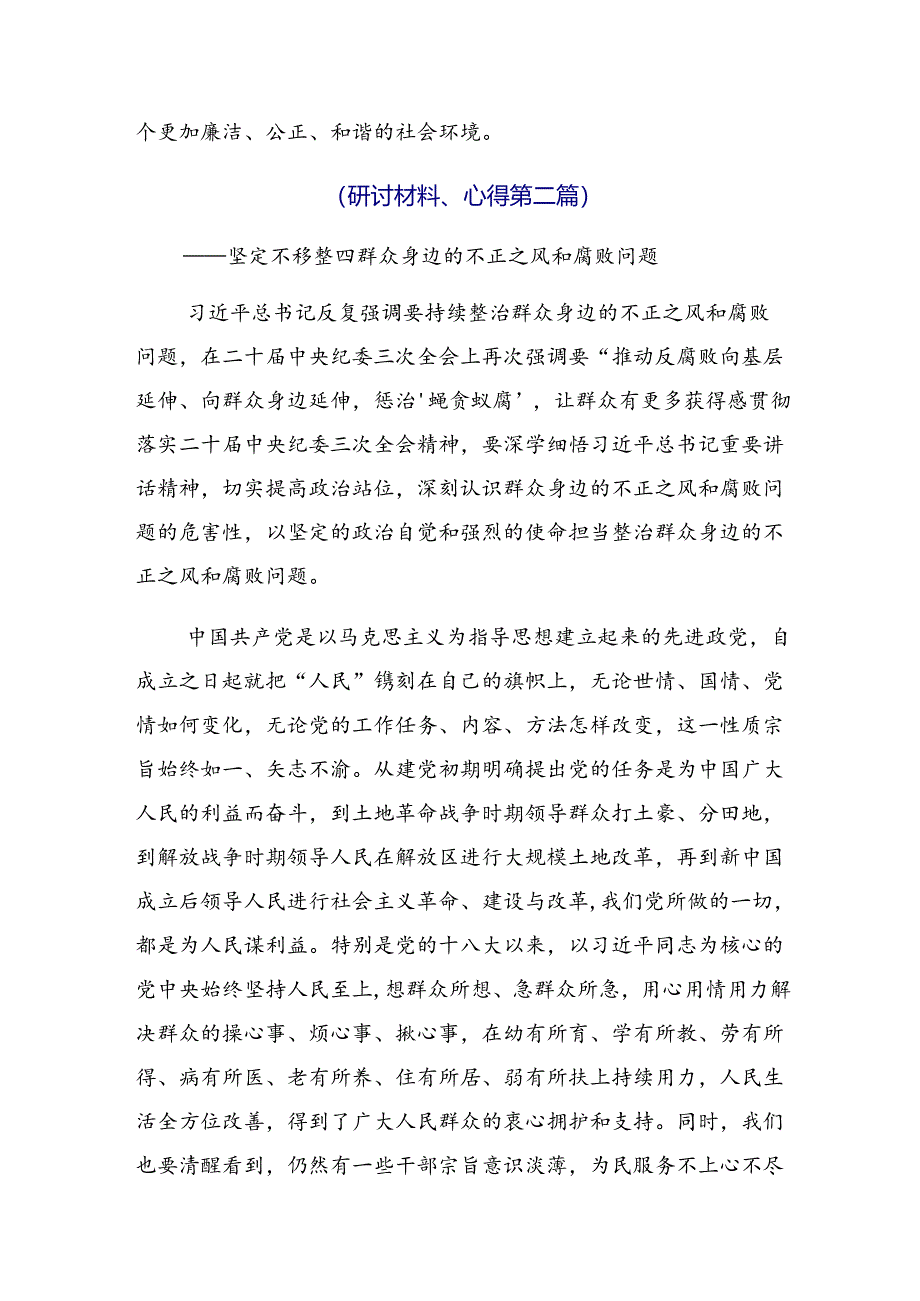 个更加廉洁、公正、和谐的社会环境。
（研讨材料、心得第二篇）
——坚定不移整四群众身边的不正之风和腐败问题
习近平总书记反复强调要持续整治群众身边的不正之风和腐败
问题，在二十届中央纪委三次全会上再次强调要“推动反腐败向基层
延伸、向群众身边延伸，惩治'蝇贪蚁腐’，让群众有更多获得感贯彻
落实二十届中央纪委三次全会精神，要深学细悟习近平总书记重要讲
话精神，切实提高政治站位，深刻认识群众身边的不正之风和腐败问
题的危害性，以坚定的政治自觉和强烈的使命担当整治群众身边的不
正之风和腐败问题。
中国共产党是以马克思主义为指导思想建立起来的先进政党，自
成立之日起就把“人民”镌刻在自己的旗帜上，无论世情、国情、党
情如何变化，无论党的工作任务、内容、方法怎样改变，这一性质宗
旨始终如一、矢志不渝。从建党初期明确提出党的任务是为中国广大
人民的利益而奋斗，到土地革命战争时期领导群众打土豪、分田地，
到解放战争时期领导人民在解放区进行大规模土地改革，再到新中国
成立后领导人民进行社会主义革命、建设与改革,我们党所做的一切，
都是为人民谋利益。特别是党的十八大以来，以习近平同志为核心的
党中央始终坚持人民至上,想群众所想、急群众所急，用心用情用力解
决群众的操心事、烦心事、揪心事，在幼有所育、学有所教、劳有所
得、病有所医、老有所养、住有所居、弱有所扶上持续用力，人民生
活全方位改善，得到了广大人民群众的衷心拥护和支持。同时，我们
也要清醒看到，仍然有一些干部宗旨意识淡薄，为民服务不上心不尽